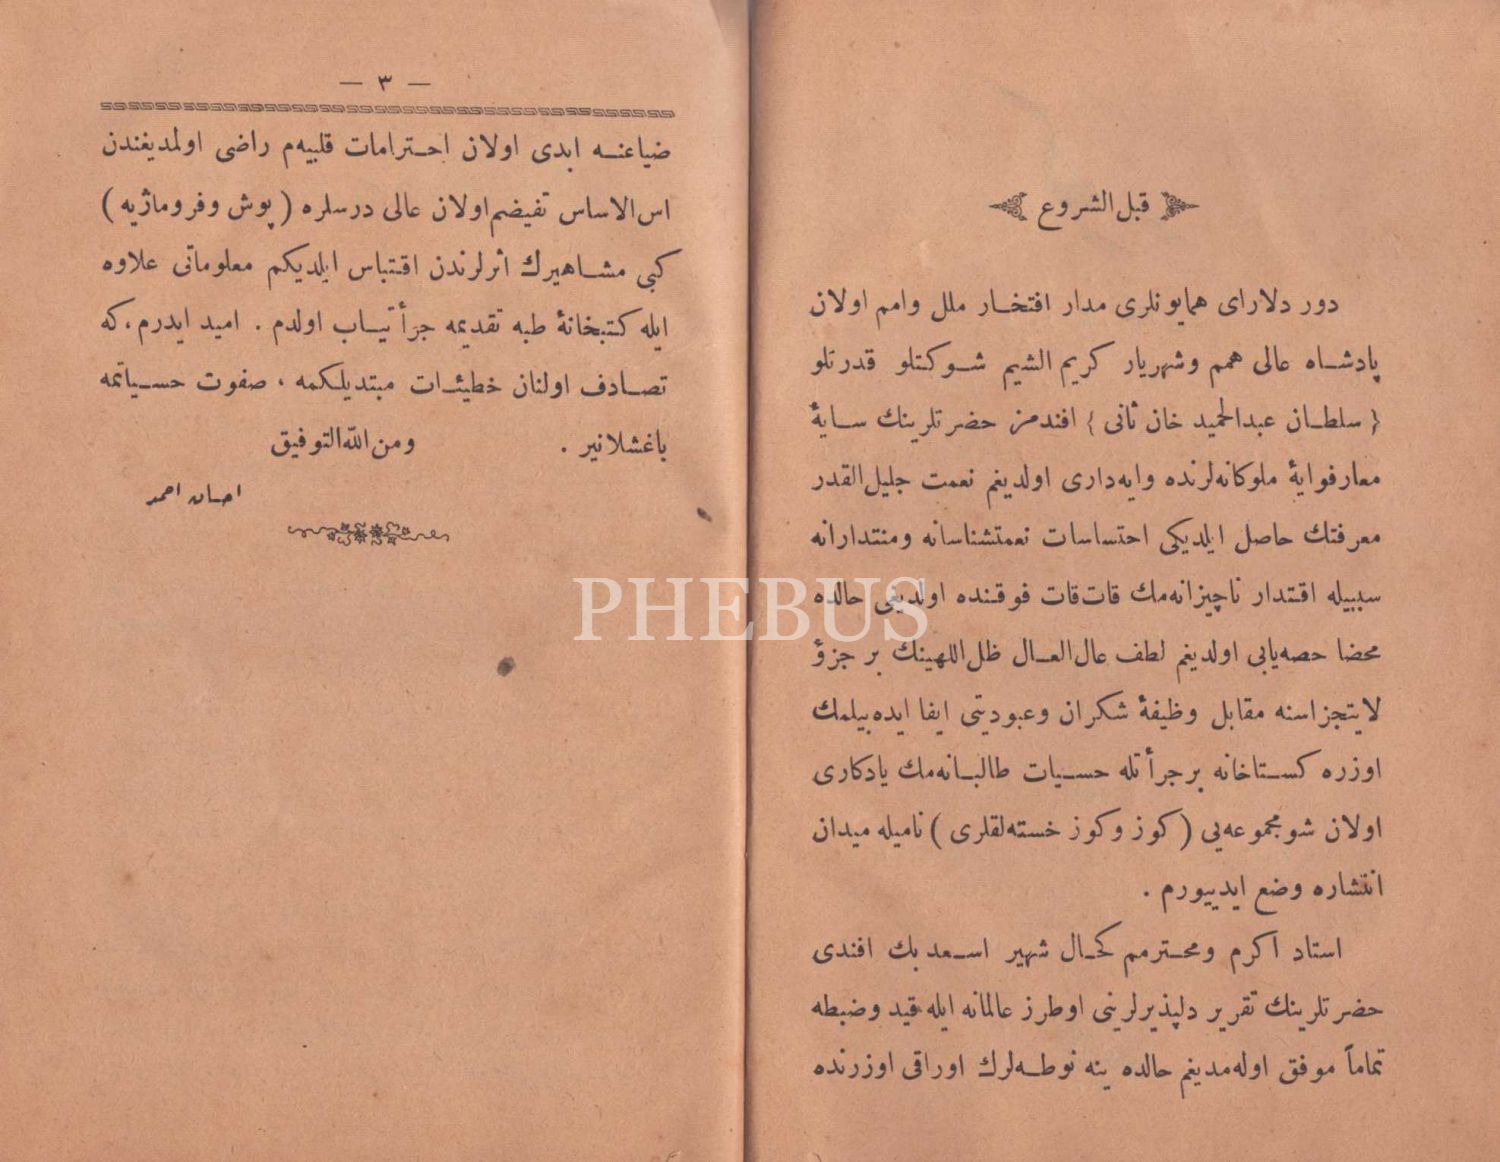 قبل الشروع
دور دلارای همایونلری مدار افتخار ملل وامم اولان
پادشاه عالی همم وشهریار کریم الشیم شوکتلو قدرتلو
{ سلطان عبدالحمید خان ثانی } افندمز حضرتلرینك سایهٔ
معارفوایهٔ ملوکانه‌لرنده وایه‌داری اولدیغم نعمت جلیل القدر
معرفتك حاصل ایلدیکی احتساسات نعمتشناسانه ومنتدارانه
سببیله اقتدار ناچیزانه‌مك قات قات فوقنده اولدیغی حالده
محضا حصه‌یابی اولدیغم لطف عال العال ظل اللهینك بر جزؤ
لایتجزاسنه مقابل وظیفهٔ شکران وعبودیتی ایفا ایده‌بیلمك
اوزره کستاخانه بر جرأتله حسیات طالبانه‌مك یادکاری
اولان شو مجموعه‌یی ( کوز وکوز خسته‌لقلری ) نامیله میدان
انتشاره وضع ایدییورم .
استاد اکرم ومحترمم کحال شهیر اسعد بك افندی
حضرتلرینك تقریر دلپذیرلرینی اوطرز عالمانه ایله قید وضبطه
تماماً موفق اوله‌مدیغم حالده ینه نوطه‌لرك اوراقی اوزرنده
— ٣ —
ضیاعنه ابدی اولان احترامات قلبیه‌م راضی اولمدیغندن
اس الاساس تفیضم اولان عالی درسلره ( پوش وفروماژیه )
کبی مشاهیرك اثرلرندن اقتباس ایلدیکم معلوماتی علاوه
ایله کتبخانهٔ طبه تقدیمه جرأتیاب اولدم . امید ایدرم ، که
تصادف اولنان خطیئات مبتدیلکمه ، صفوت حسیاتمه
باغشلانیر . ومن الله التوفیق
احسان احمد
PHEBUS